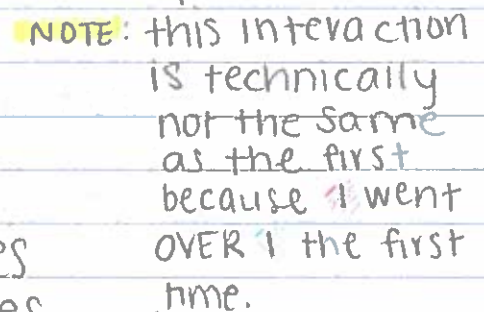 NOTE: this interaction
is technically
not the same
as the first
because I went
es OVER 1 the first
es time.